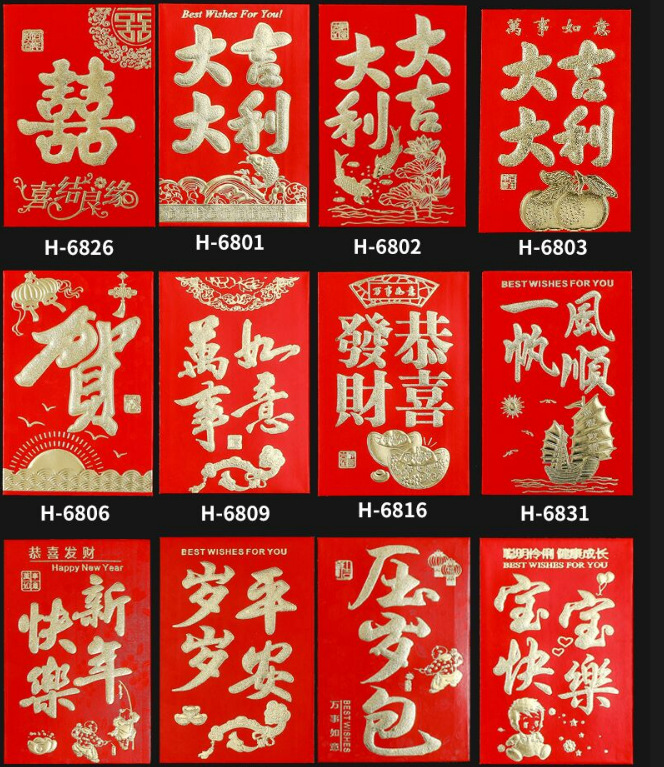 囍
喜结良缘
H-6826
Best Wishes For You!
大吉
大利
H-6801
大吉
大利
H-6802
萬事如意
大吉
大利
H-6803
賀
H-6806
萬事
如意
H-6809
万事如意
恭喜
發財
H-6816
BEST WISHES FOR YOU
一帆
風順
H-6831
恭喜发财
Happy New Year
新年
快樂
BEST WISHES FOR YOU
岁岁
平安
压岁包
BEST WISHES
万事如意
聪明伶俐 健康成长
BEST WISHES FOR YOU
宝宝
快樂